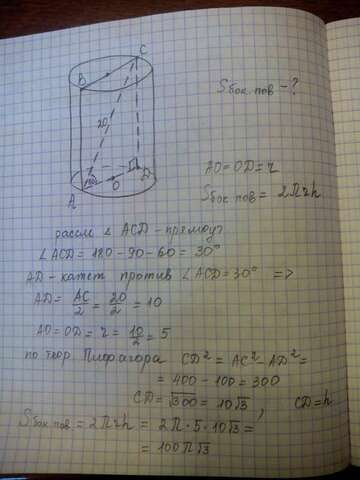 C
B
20
Sбок.пов - ?
60°
O
D
A
AO = OD = r
Sбок.пов = 2πrh
рассм △ ACD - прямоуг
∠ACD = 180 - 90 - 60 = 30°
AD - катет против ∠ACD = 30° =>
AD = AC/2 = 20/2 = 10
AO = OD = r = 10/2 = 5
по теор. Пифагора CD² = AC² - AD² =
= 400 - 100 = 300
CD = √300 = 10√3, CD = h
Sбок.пов = 2πrh = 2π · 5 · 10√3 =
= 100π√3